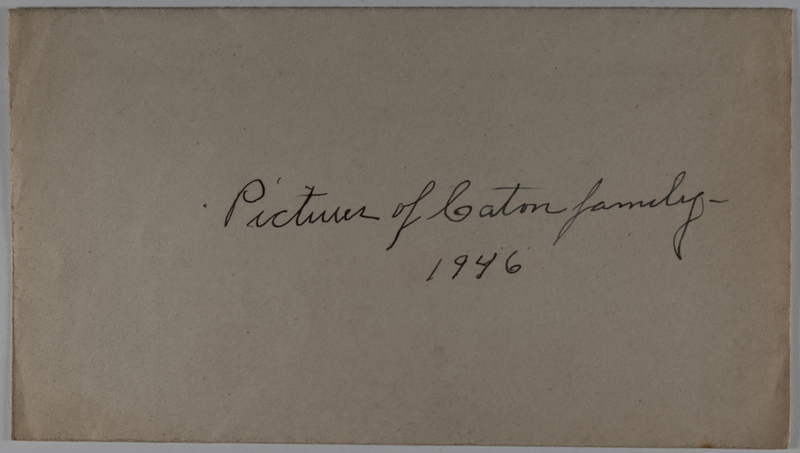 Pictures of Caton family-
1946